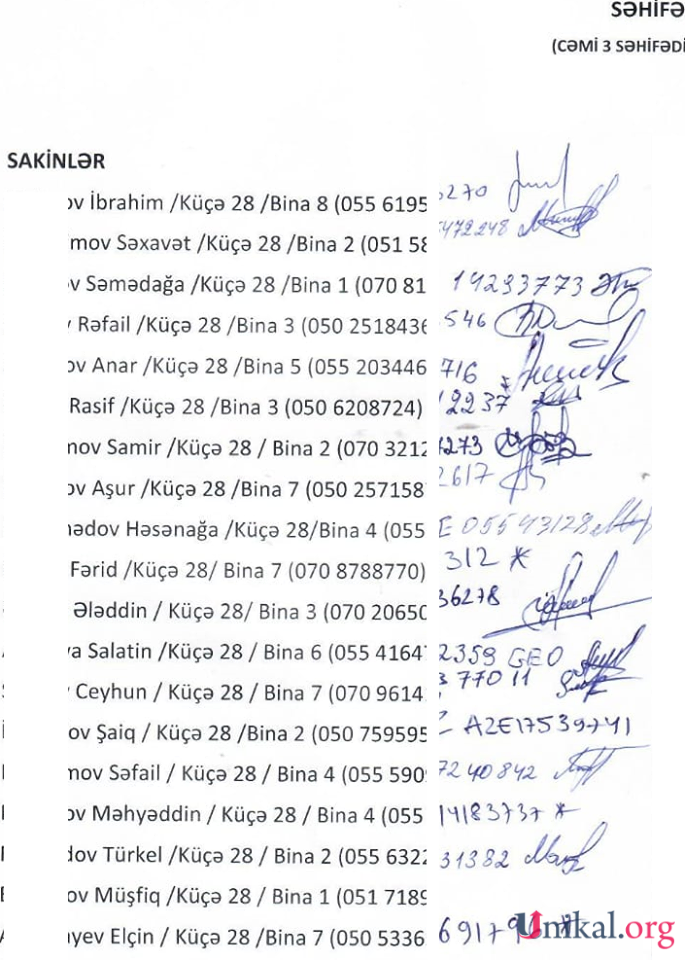 SƏHİFƏ
(CƏMİ 3 SƏHİFƏDİ
SAKİNLƏR
ov İbrahim /Küçə 28 /Bina 8 (055 6195 270
mov Səxavət /Küçə 28 /Bina 2 (051 58 472248
v Səmədağa /Küçə 28 /Bina 1 (070 81 14293773
Rəfail /Küçə 28 /Bina 3 (050 2518436 546
ov Anar /Küçə 28 /Bina 5 (055 203446 716
Rasif /Küçə 28 /Bina 3 (050 6208724) 12237
mov Samir /Küçə 28 / Bina 2 (070 3212 4273
ov Aşur /Küçə 28 /Bina 7 (050 257158 2617
mədov Həsənağa /Küçə 28/Bina 4 (055 E 05543128
Fərid /Küçə 28/ Bina 7 (070 8788770) 312 *
Ələddin / Küçə 28/ Bina 3 (070 20650 36278
va Salatin /Küçə 28 / Bina 6 (055 4164 2359 GEO
Ceyhun / Küçə 28 / Bina 7 (070 9614 77011
ov Şaiq / Küçə 28 /Bina 2 (050 759595 AZE17539741
mov Səfail / Küçə 28 / Bina 4 (055 590 7240842
ov Məhyəddin / Küçə 28 / Bina 4 (055 14183737 *
dov Türkel /Küçə 28 / Bina 2 (055 6322 31382
ov Müşfiq /Küçə 28 / Bina 1 (051 7189
yev Elçin / Küçə 28 /Bina 7 (050 5336 69179
Unikal.org